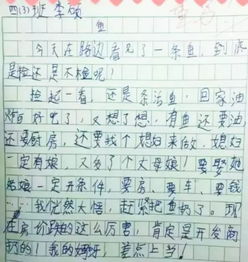 四(3)班 李硕
鱼
今天在路边看见了一条鱼，到底
是捡还是不捡呢！
捡起一看，还是条活鱼，回家油
炸可好吃了，又想了想，有鱼还要油
还要厨房，还要找个媳妇来做，媳妇
一定有娘，又多了个丈母娘！要娶她
老娘一定开条件，要房、要车、要钱
……我恍然大悟，赶紧把鱼扔了。现
在房价涨的这么厉害，肯定是开发商
扔的！我的妈呀，差点上当！